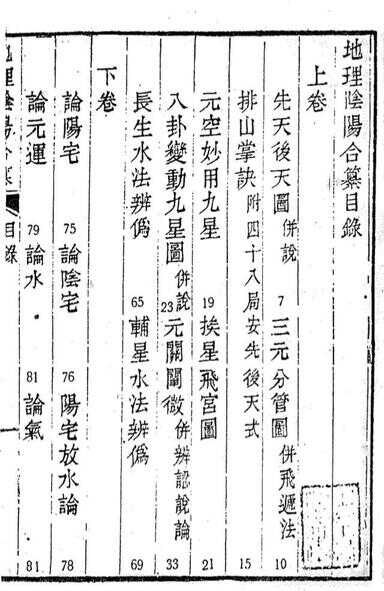 地理陰陽合纂目錄
上卷
先天後天圖 併說 7 三元分管圖 併飛遁法 10
排山掌訣 附四十八局安先後天式 15
元空妙用九星 19 挨星飛宮圖 21
八卦變動九星圖 併說 23 元關闡微 併辨認說論 33
長生水法辨僞 65 輔星水法辨僞 69
下卷
論陽宅 75 論陰宅 76 陽宅放水論 78
論元運 79 論水 81 論氣 81
地理陰陽合纂 目錄 一